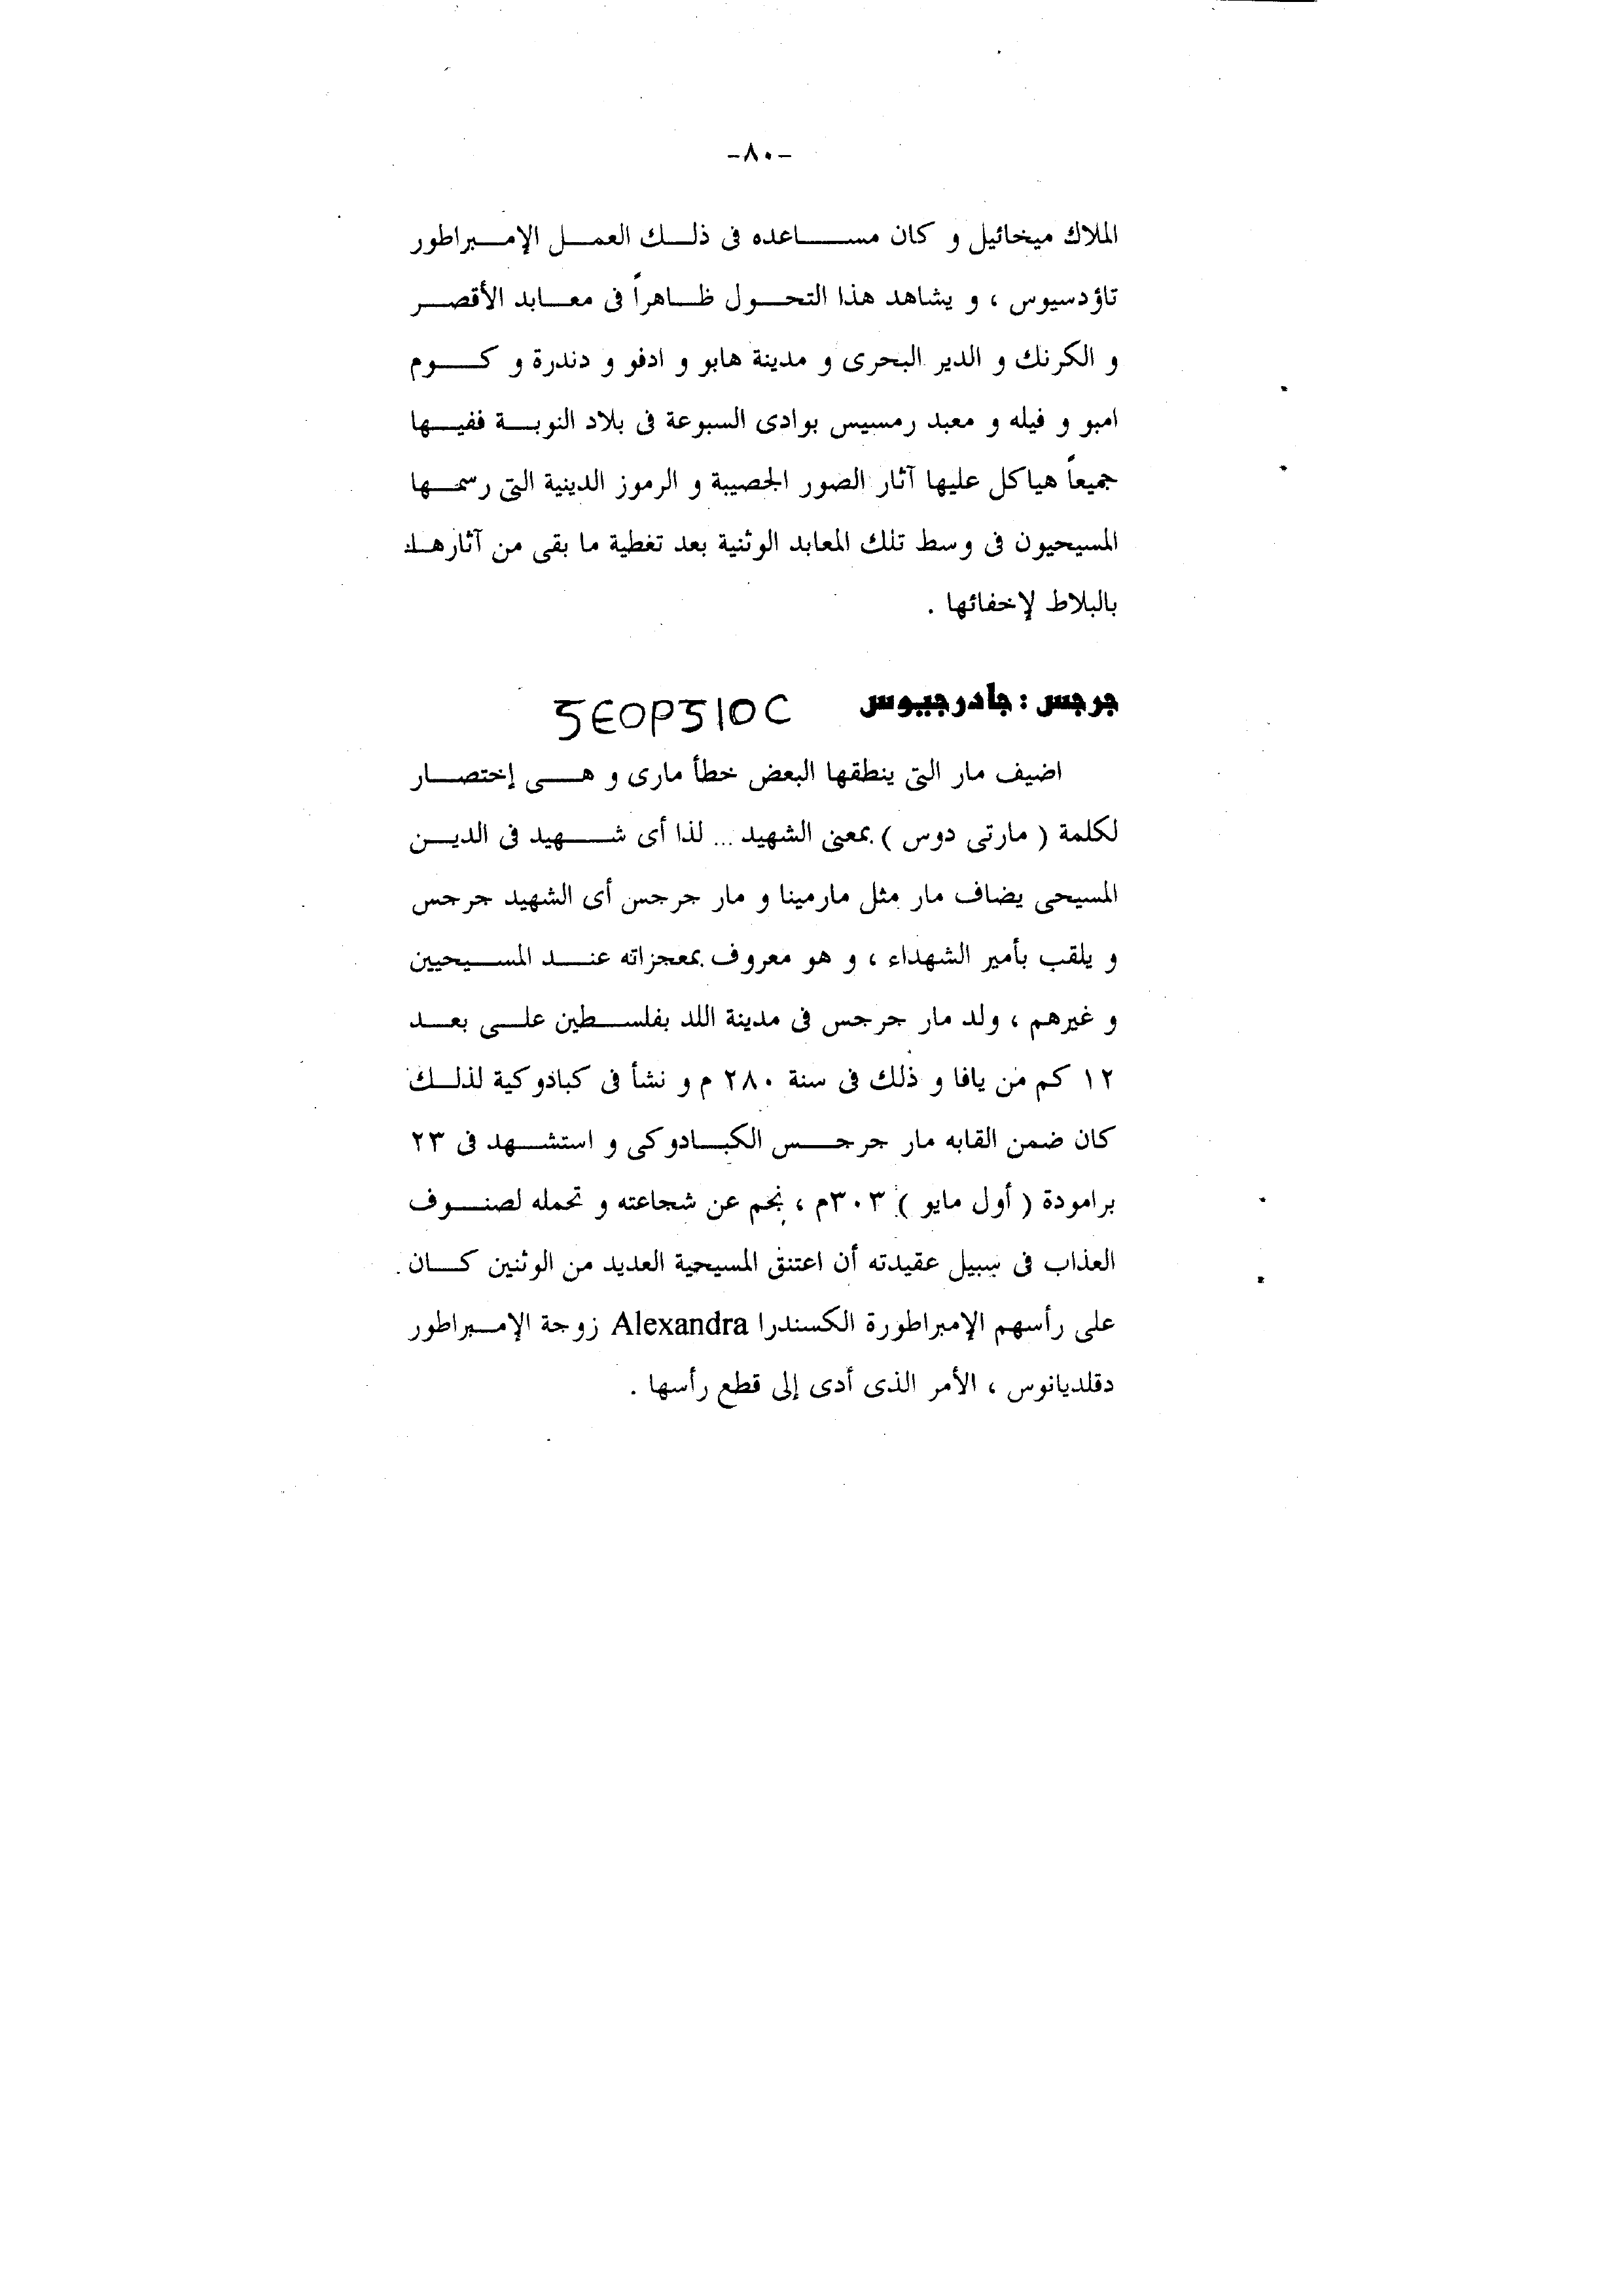 -٨٠-
الملاك ميخائيل و كان مساعده فى ذلك العمل الإمبراطور
تاؤدسيوس ، و يشاهد هذا التحول ظاهراً فى معابد الأقصر
و الكرنك و الدير البحرى و مدينة هابو و ادفو و دندرة و كوم
امبو و فيله و معبد رمسيس بوادى السبوعة فى بلاد النوبة ففيها
جميعاً هياكل عليها آثار الصور الجصيبة و الرموز الدينية التى رسمها
المسيحيون فى وسط تلك المعابد الوثنية بعد تغطية ما بقى من آثارها
بالبلاط لإخفائها .
جرجس : جادرجيوس ϬЄΟΡϬΙΟC
اضيف مار التى ينطقها البعض خطأ مارى و هى إختصار
لكلمة ( مارتى دوس ) بمعنى الشهيد ... لذا أى شهيد فى الدين
المسيحى يضاف مار مثل مارمينا و مار جرجس أى الشهيد جرجس
و يلقب بأمير الشهداء ، و هو معروف بمعجزاته عند المسيحيين
و غيرهم ، ولد مار جرجس فى مدينة اللد بفلسطين على بعد
١٢ كم من يافا و ذلك فى سنة ٢٨٠ م و نشأ فى كبادوكية لذلك
كان ضمن القابه مار جرجس الكبادوكى و استشهد فى ٢٣
برامودة ( أول مايو ) ٣٠٣م ، نجم عن شجاعته و تحمله لصنوف
العذاب فى سبيل عقيدته أن اعتنق المسيحية العديد من الوثنين كان
على رأسهم الإمبراطورة الكسندرا Alexandra زوجة الإمبراطور
دقلديانوس ، الأمر الذى أدى إلى قطع رأسها .